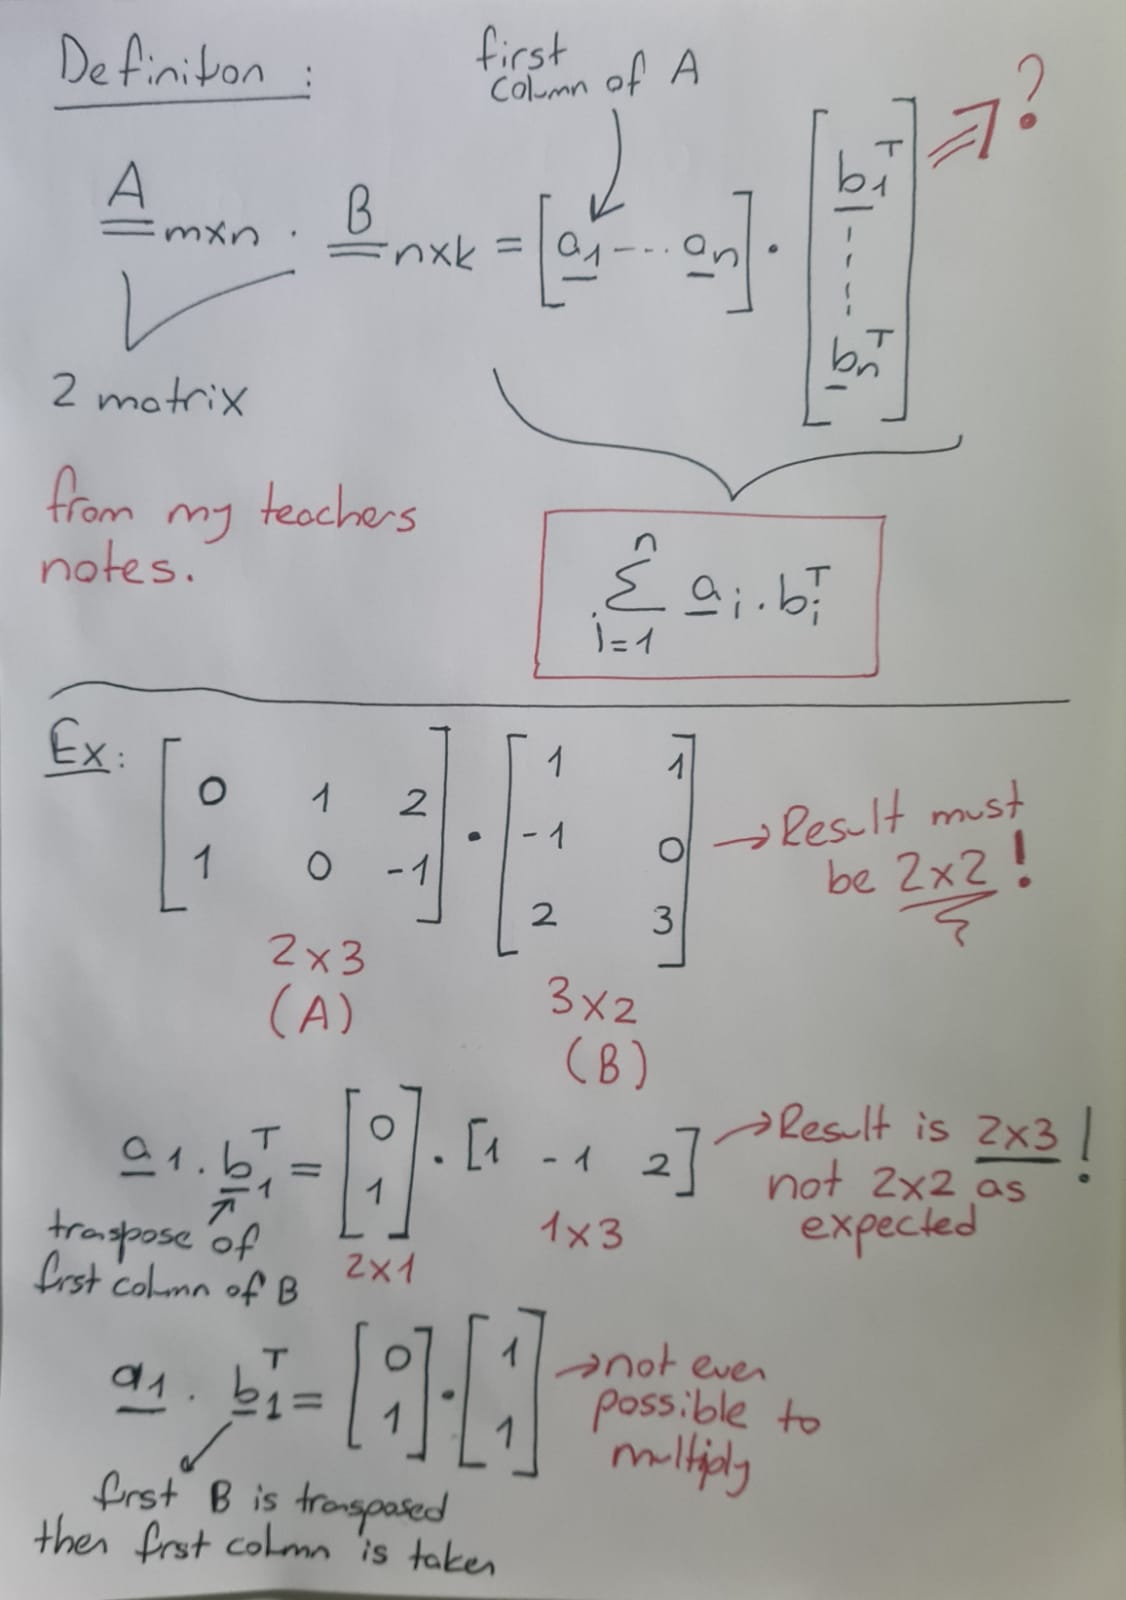 Definition :
first
column of A
A m×n . B n×k = [a1 --... an] . [b1ᵀ ---- bnᵀ] ⇒ ?
2 matrix
from my teachers
notes.
n
Σ ai . biᵀ
i=1
Ex: [0 1 2
1 0 -1] . [1 1
-1 0
2 3] → Result must
be 2×2 !
2×3
(A)
3×2
(B)
a1 . b1ᵀ = [0
1] . [1 -1 2] → Result is 2×3 !
not 2×2 as
expected
2×1
1×3
traspose of
first column of B
a1 . b1ᵀ = [0
1] . [1
1] → not even
possible to
multiply
first B is transposed
then first column is taken